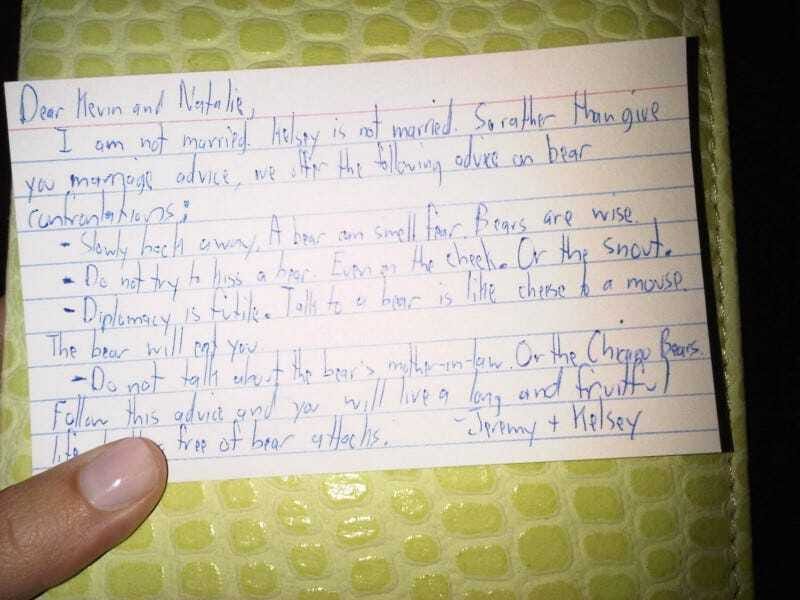 Dear Kevin and Natalie,
I am not married. Kelsey is not married. So rather than give
you marriage advice, we offer the following advice on bear
confrontations:
- Slowly back away. A bear can smell fear. Bears are wise.
- Do not try to kiss a bear. Even on the cheek. Or the snout.
- Diplomacy is futile. Talk to a bear is like cheese to a mouse.
The bear will eat you.
- Do not talk about the bear's mother-in-law. Or the Chicago Bears.
Follow this advice and you will live a long and fruitful
life free of bear attacks. -Jeremy + Kelsey